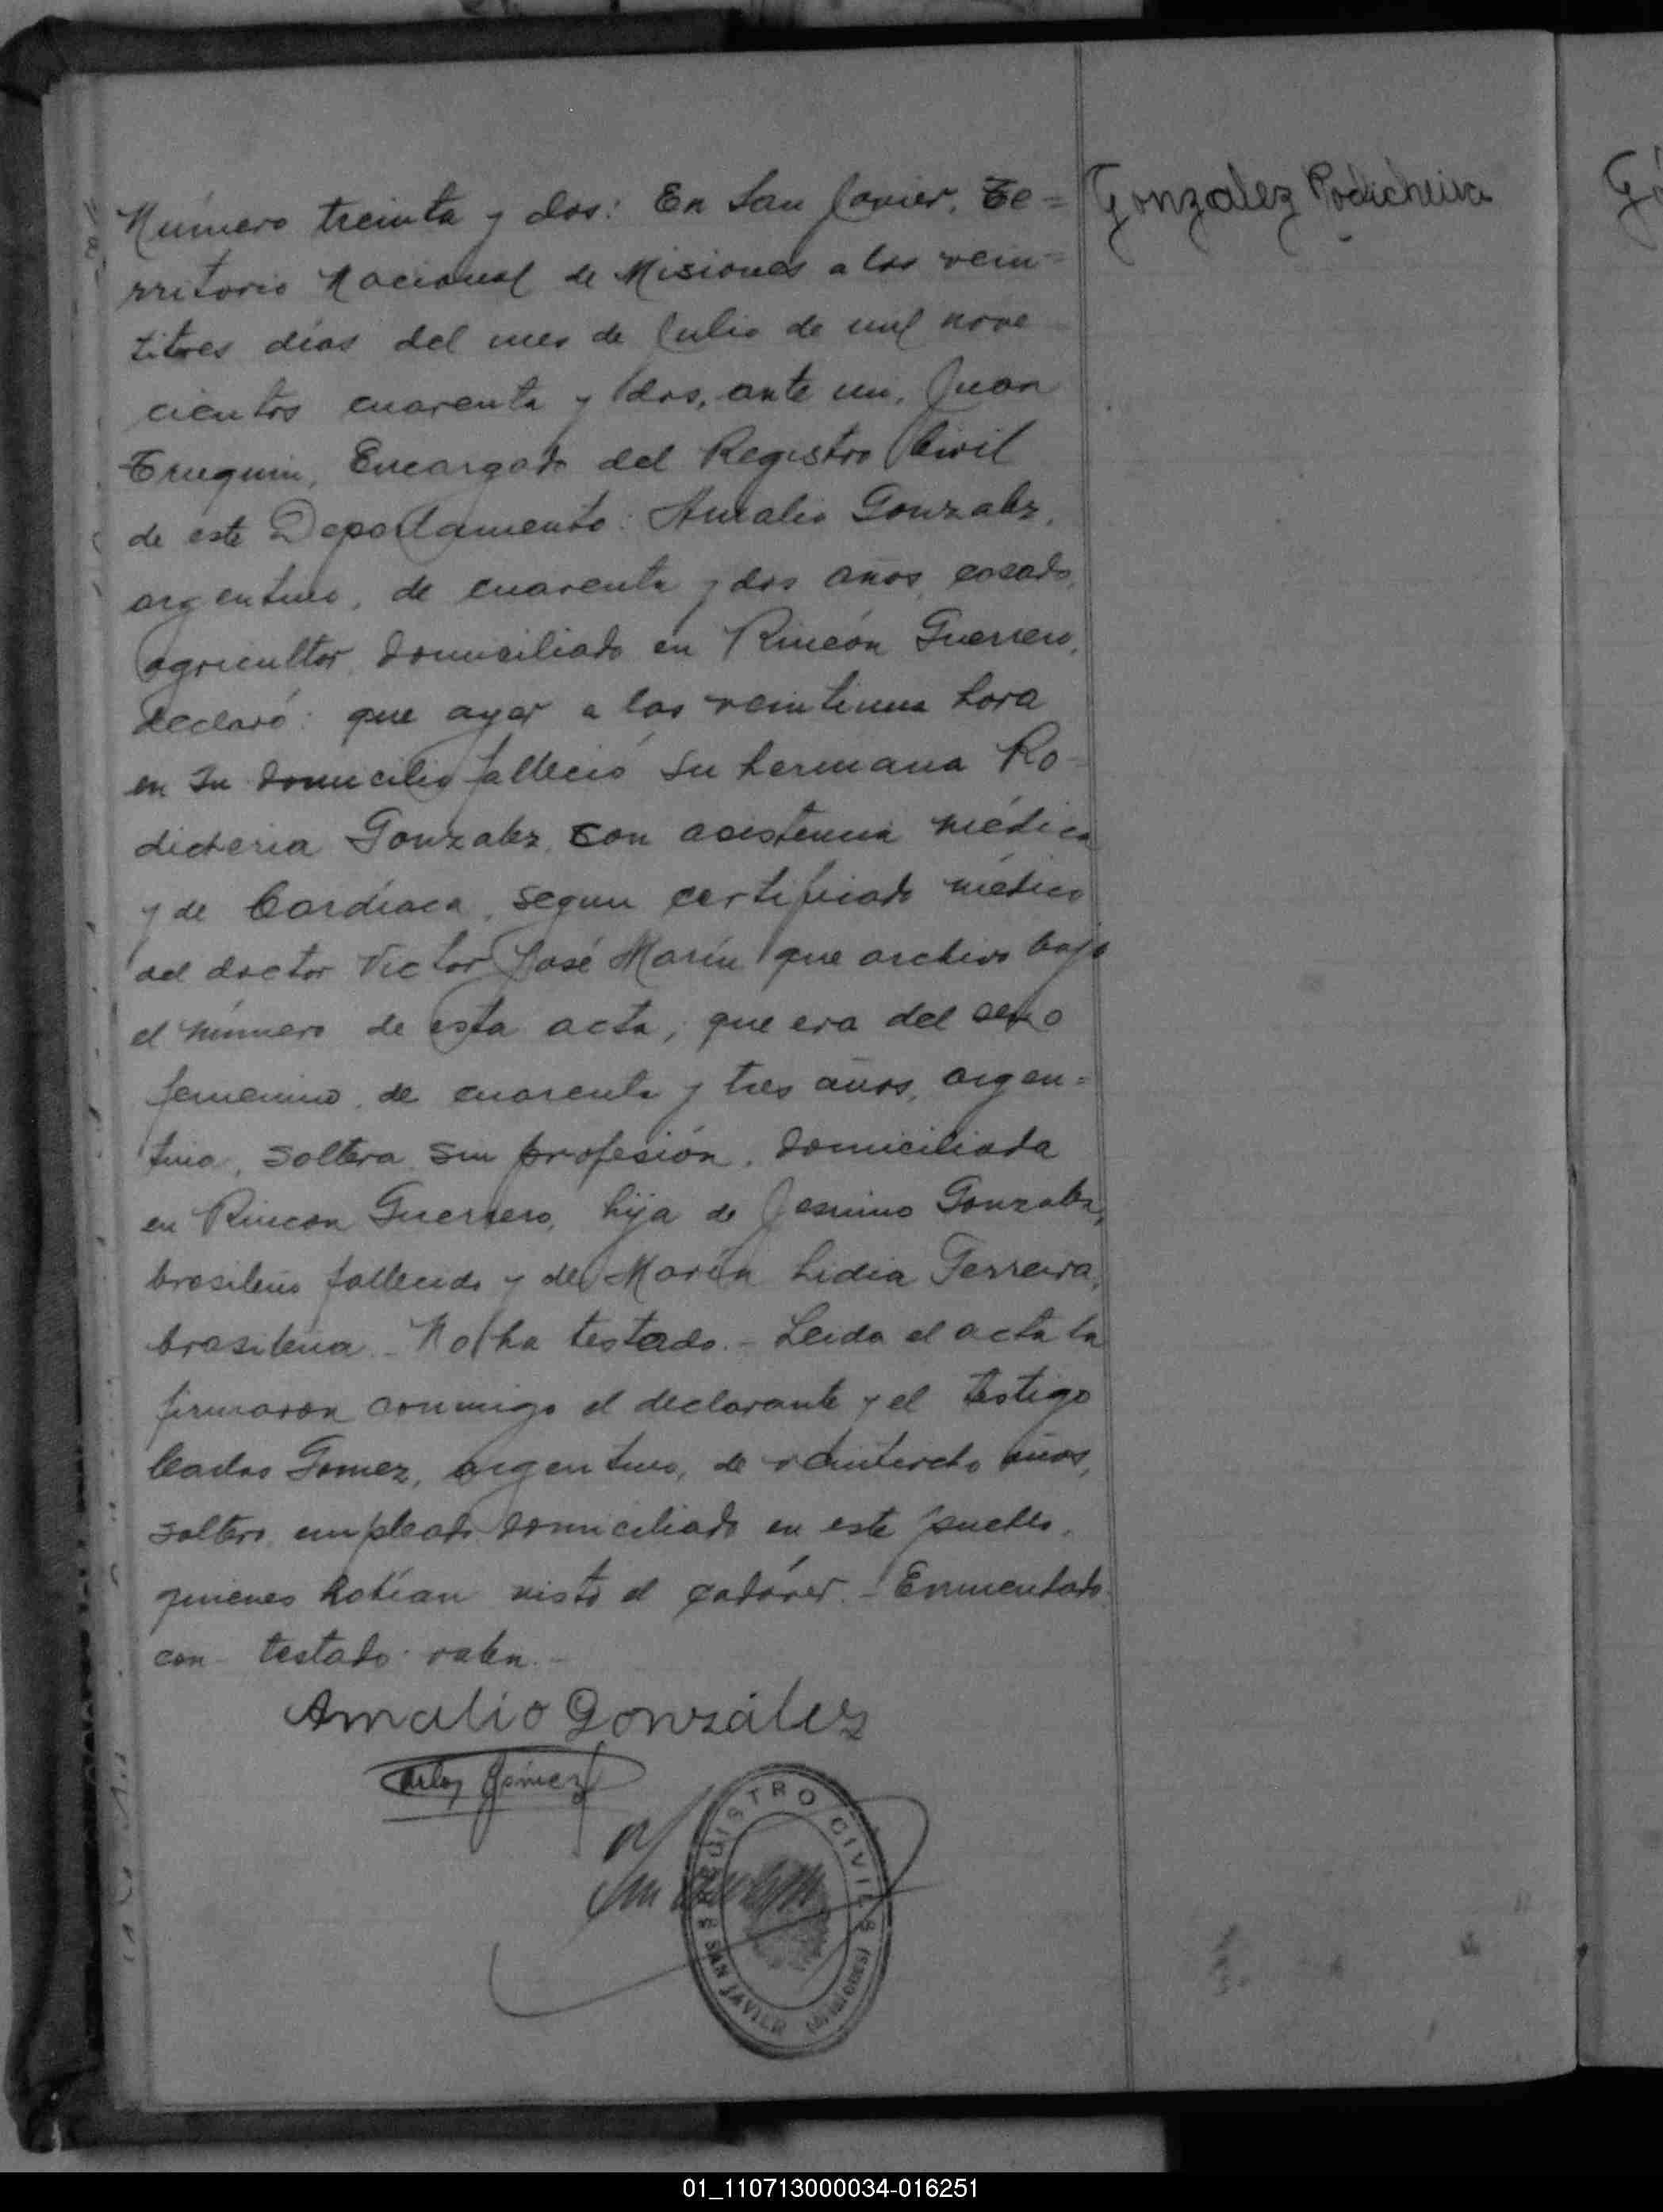 Número treinta y dos: En San Javier, Te=
rritorio Nacional de Misiones a los vein=
titres días del mes de Julio de mil nove
cientos cuarenta y dos, ante mi, Juan
Encargado del Registro Civil
de este Departamento: Amalio Gonzalez,
argentino, de cuarenta y dos años, casado,
agricultor, domiciliado en Rincón Guerrero,
declaró: que ayer a las veintiuna hora
en su domicilio falleció su hermana Ro-
dicheria Gonzalez, con asistencia médica
y de Cardíaca, segun certificado médico
del doctor Victor José Marín que archivo bajo
el número de esta acta; que era del sexo
femenino, de cuarenta y tres años, argen=
tina, soltera, sin profesión, domiciliada
en Rincon Guerrero, hija de Gonzalez,
brasileño fallecido y de María Lidia Ferreira,
brasileña.- No ha testado.- Leida el acta la
firmaron conmigo el declarante y el testigo
Carlos Gomez, argentino, de veintiocho años,
soltero, empleado domiciliado en este pueblo,
quienes habían visto el cadáver.- Enmendado.
con- testado- valen.-
Amalio González
Carlos Gómez
REGISTRO CIVIL
SAN JAVIER (MISIONES)
Gonzalez Rodicheira
01_110713000034-016251